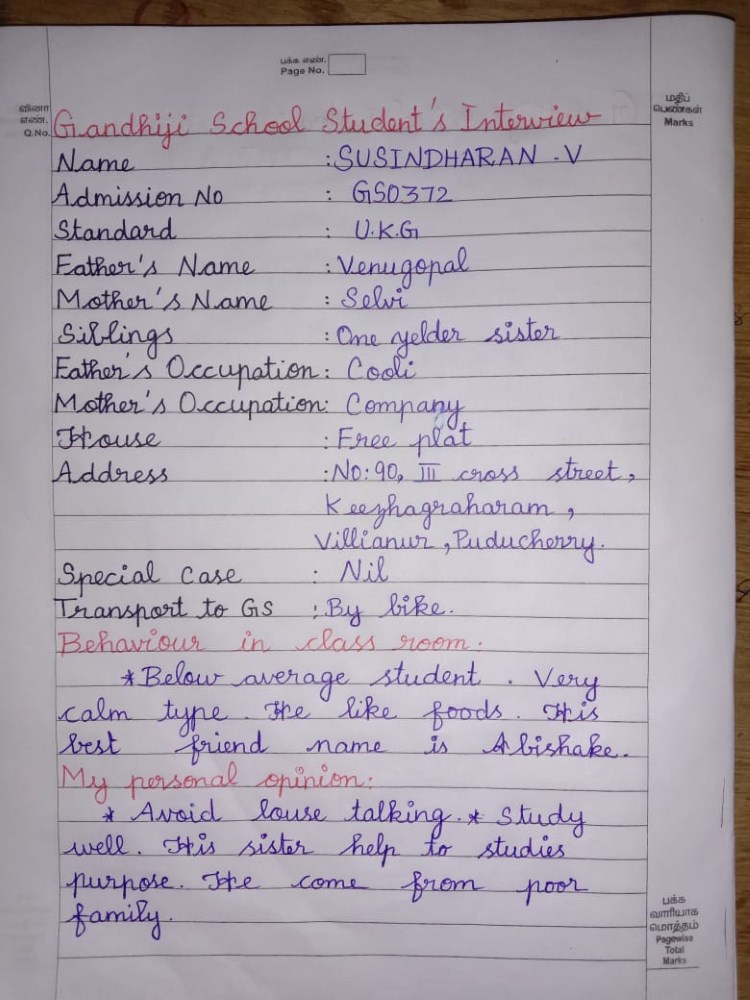 பக்க எண்.
Page No.
வினா
எண்.
Q.No.
மதிப்
பெண்கள்
Marks
Gandhiji School Student's Interview
Name : SUSINDHARAN . V
Admission No : GS0372
Standard : U.K.G
Father's Name : Venugopal
Mother's Name : Selvi
Siblings : One yelder sister
Father's Occupation : Cooli
Mother's Occupation : Company
House : Free plat
Address : No: 90, III cross street,
Keezhagraharam ,
Villianur , Puducherry.
Special Case : Nil
Transport to GS : By bike.
Behaviour in class room.
* Below average student . Very
calm type . He like foods . His
best friend name is Abishake.
My personal opinion:
* Avoid louse talking. * Study
well. His sister help to studies
purpose. He come from poor
family.
பக்க
வாரியாக
மொத்தம்
Pagewise
Total
Marks